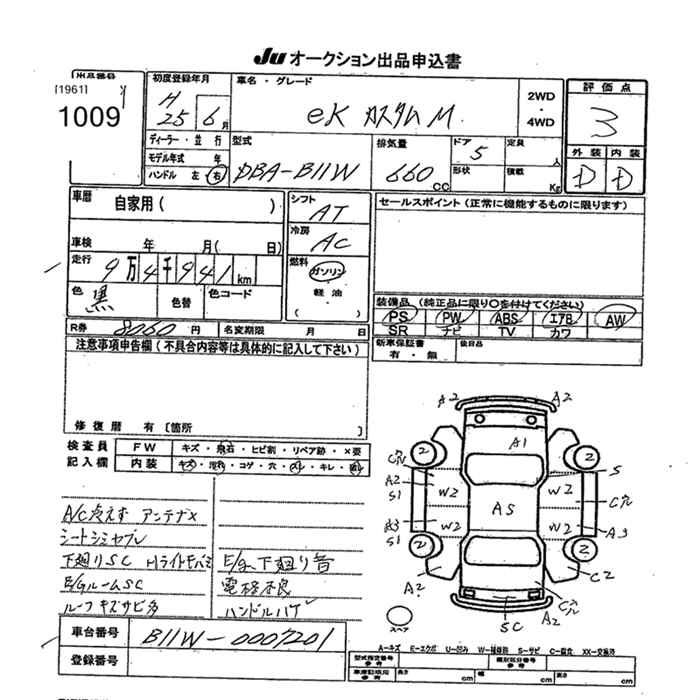 Ju オークション出品申込書
出品番号
[1961]
1009
初度登録年月
H 25 6月
車名・グレード
eK カスタム M
2WD・4WD
評価点
3
外装 内装
D D
ディーラー・並行
モデル年式 年
ハンドル 左 右
型式
DBA-B11W
排気量
660 CC
ドア
5
形状
定員 人
積載 Kg
車歴
自家用( )
シフト
AT
セールスポイント(正常に機能するものに限ります)
車検 年 月( 日)
冷房
AC
走行
9万4千941km
燃料
ガソリン・軽油・
( )
色
黒
色替
色コード
装備品(純正品に限り○を付けてください)
PS PW ABS エアB AW
SR ナビ TV カワ
R券 8060円
名変期限 月 日
新車保証書
有・無
後日品
注意事項申告欄(不具合内容等は具体的に記入して下さい)
修復歴 有〔箇所 〕
検査員記入欄
FW キズ・飛石・ヒビ割・リペア跡・×要
内装 キズ・汚れ・コゲ・穴・スレ・キレ・
A/C冷えず アンテナX
シートシミヤブレ
下廻りSC Hライトキバミ E/g、下廻り音
E/GルームSC 電格不良
ルーフキズサビ多 ハンドルハゲ
A2 A2
2 A1 2
Cアル S
A2 S1 W2 W2 Cアル
A5
A3 S1 W2 W2 A3
2 2
A2 C2
Cアル
SC A2
スペア
車台番号
B11W-0007201
登録番号
A-キズ E-エクボ U-凹み W-補修跡 S-サビ C-腐食 XX-交換済
型式指定番号 参考
類別区分番号 参考
車庫証明用 参考
長さ cm 幅 cm 高さ cm